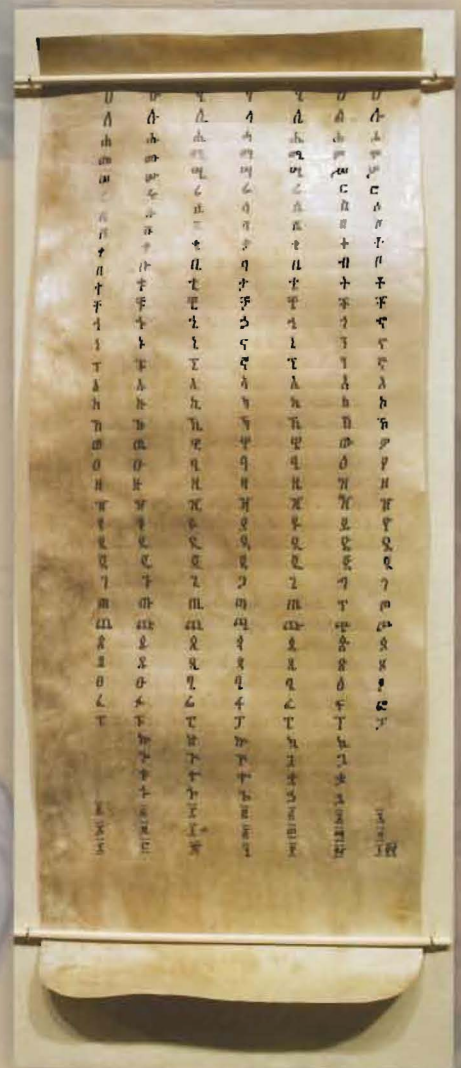 ሀ ሁ ሂ ሃ ሄ ህ ሆ
ለ ሉ ሊ ላ ሌ ል ሎ
ሐ ሑ ሒ ሓ ሔ ሕ ሖ
መ ሙ ሚ ማ ሜ ም ሞ
ሠ ሡ ሢ ሣ ሤ ሥ ሦ
ረ ሩ ሪ ራ ሬ ር ሮ
ሰ ሱ ሲ ሳ ሴ ስ ሶ
ሸ ሹ ሺ ሻ ሼ ሽ ሾ
ቀ ቁ ቂ ቃ ቄ ቅ ቆ
በ ቡ ቢ ባ ቤ ብ ቦ
ተ ቱ ቲ ታ ቴ ት ቶ
ቸ ቹ ቺ ቻ ቼ ች ቾ
ኀ ኁ ኂ ኃ ኄ ኅ ኆ
ነ ኑ ኒ ና ኔ ን ኖ
ኘ ኙ ኚ ኛ ኜ ኝ ኞ
አ ኡ ኢ ኣ ኤ እ ኦ
ከ ኩ ኪ ካ ኬ ክ ኮ
ኸ ኹ ኺ ኻ ኼ ኽ ኾ
ወ ዉ ዊ ዋ ዌ ው ዎ
ዐ ዑ ዒ ዓ ዔ ዕ ዖ
ዘ ዙ ዚ ዛ ዜ ዝ ዞ
ዠ ዡ ዢ ዣ ዤ ዥ ዦ
የ ዩ ዪ ያ ዬ ይ ዮ
ደ ዱ ዲ ዳ ዴ ድ ዶ
ጀ ጁ ጂ ጃ ጄ ጅ ጆ
ገ ጉ ጊ ጋ ጌ ግ ጎ
ጠ ጡ ጢ ጣ ጤ ጥ ጦ
ጨ ጩ ጪ ጫ ጬ ጭ ጮ
ጰ ጱ ጲ ጳ ጴ ጵ ጶ
ጸ ጹ ጺ ጻ ጼ ጽ ጾ
ፀ ፁ ፂ ፃ ፄ ፅ ፆ
ፈ ፉ ፊ ፋ ፌ ፍ ፎ
ፐ ፑ ፒ ፓ ፔ ፕ ፖ